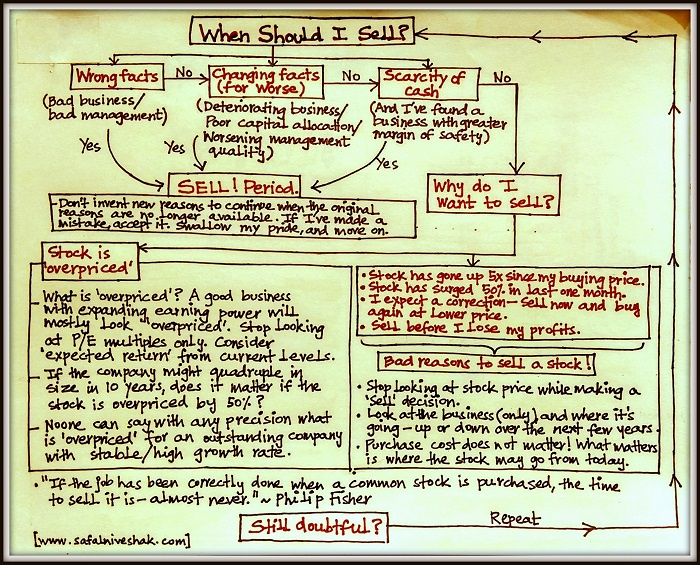 When Should I Sell?
Wrong facts
No
Changing facts
(for worse)
No
Scarcity of
cash
No
(Bad business/
bad management)
(Deteriorating business/
Poor capital allocation/
Worsening management
quality)
(And I've found a
business with greater
margin of safety)
Yes
Yes
Yes
SELL! Period.
Why do I
Want to sell?
- Don't invent new reasons to continue when the original
reasons are no longer available. If I've made a
mistake, accept it. Swallow my pride, and move on.
Stock is
'overpriced'
- What is 'overpriced'? A good business
with expanding earning power will
mostly look "overpriced'. Stop looking
at P/E multiples only. Consider
'expected return' from current levels.
- If the company might quadruple in
size in 10 years, does it matter if the
stock is overpriced by 50%?
- Noone can say with any precision what
is 'overpriced' for an outstanding company
with stable/high growth rate.
• Stock has gone up 5x since my buying price.
• Stock has surged 50% in last one month.
• I expect a correction - sell now and buy
again at lower price.
• Sell before I lose my profits.
Bad reasons to sell a stock!
• Stop looking at stock price while making a
'sell' decision.
• Look at the business (only) and where it's
going - up or down over the next few years.
• Purchase cost does not matter! What matters
is where the stock may go from today.
• "If the job has been correctly done when a common stock is purchased, the time
to sell it is - almost never." ~ Philip Fisher
Still doubtful?
Repeat
[www.safalniveshak.com]